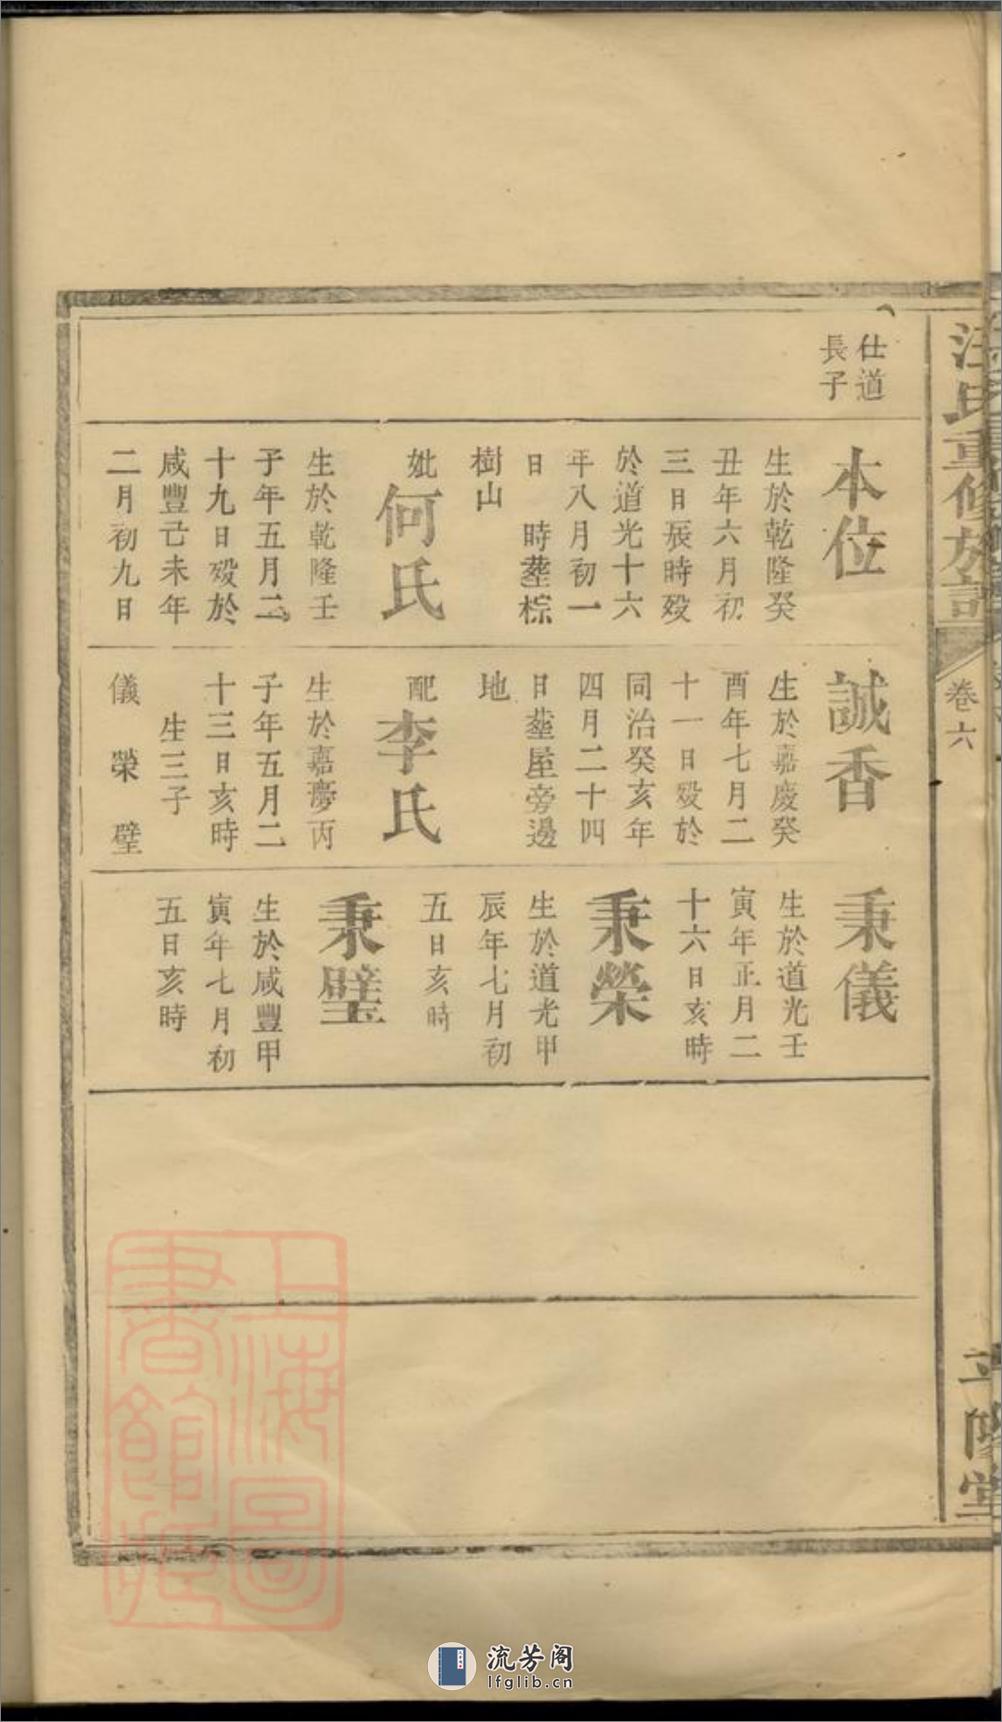 汪氏重修族譜
卷六
平陽堂
仕道
長子
本位
生於乾隆癸
丑年六月初
三日辰時殁
於道光十六
年八月初一
日　時塟棕
樹山
妣何氏
生於乾隆壬
子年五月二
十九日殁於
咸豐己未年
二月初九日
誠香
生於嘉慶癸
酉年七月二
十一日殁於
同治癸亥年
四月二十四
日塟屋旁邊
地
配李氏
生於嘉慶丙
子年五月二
十三日亥時
生三子
儀　榮　璧
秉儀
生於道光壬
寅年正月二
十六日亥時
秉榮
生於道光甲
辰年七月初
五日亥時
秉璧
生於咸豐甲
寅年七月初
五日亥時
上海圖
書館藏
流芳阁
lfglib.cn